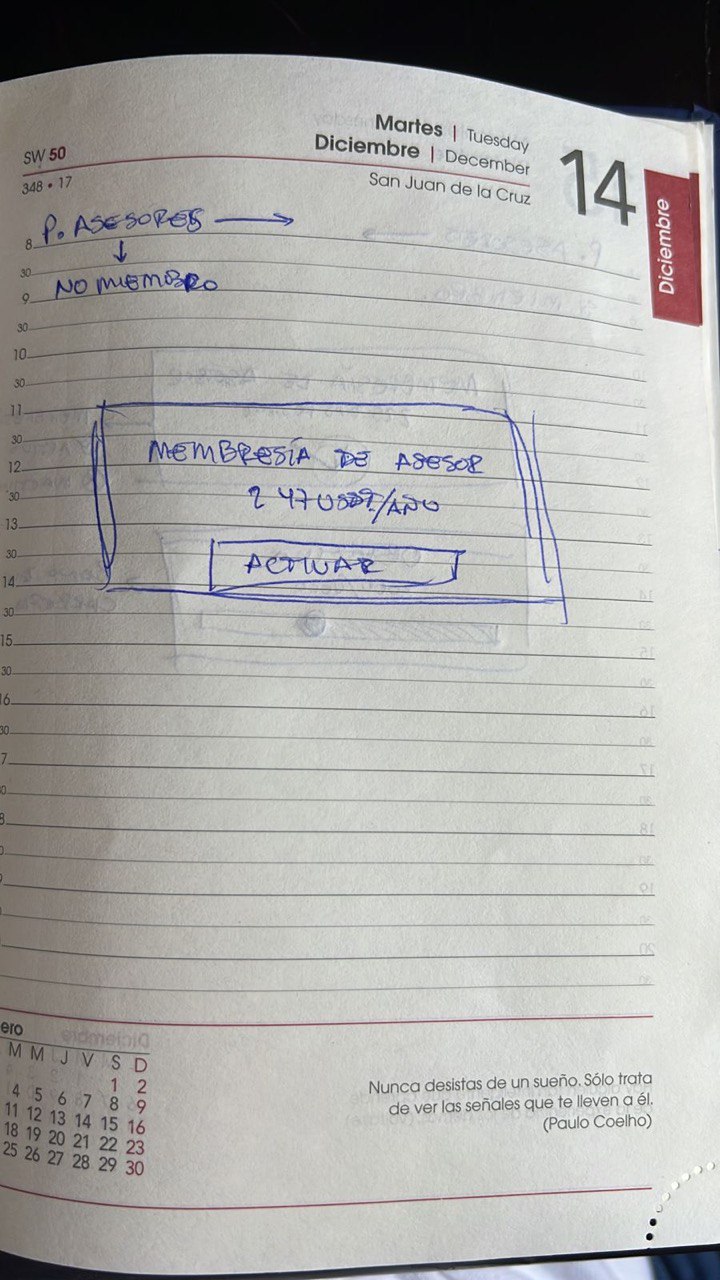 Martes | Tuesday
SW 50
Diciembre | December
14
348 • 17
San Juan de la Cruz
Diciembre
P. ASESORES →
8
↓
30
NO MIEMBRO
9
30
10
30
11
30
MEMBRESÍA DE ASESOR
12
247 USDT/AÑO
30
13
ACTIVAR
30
14
30
15
30
16
30
7
0
8
0
9
ero
M M J V S D
1 2
4 5 6 7 8 9
11 12 13 14 15 16
18 19 20 21 22 23
25 26 27 28 29 30
Nunca desistas de un sueño. Sólo trata
de ver las señales que te lleven a él.
(Paulo Coelho)